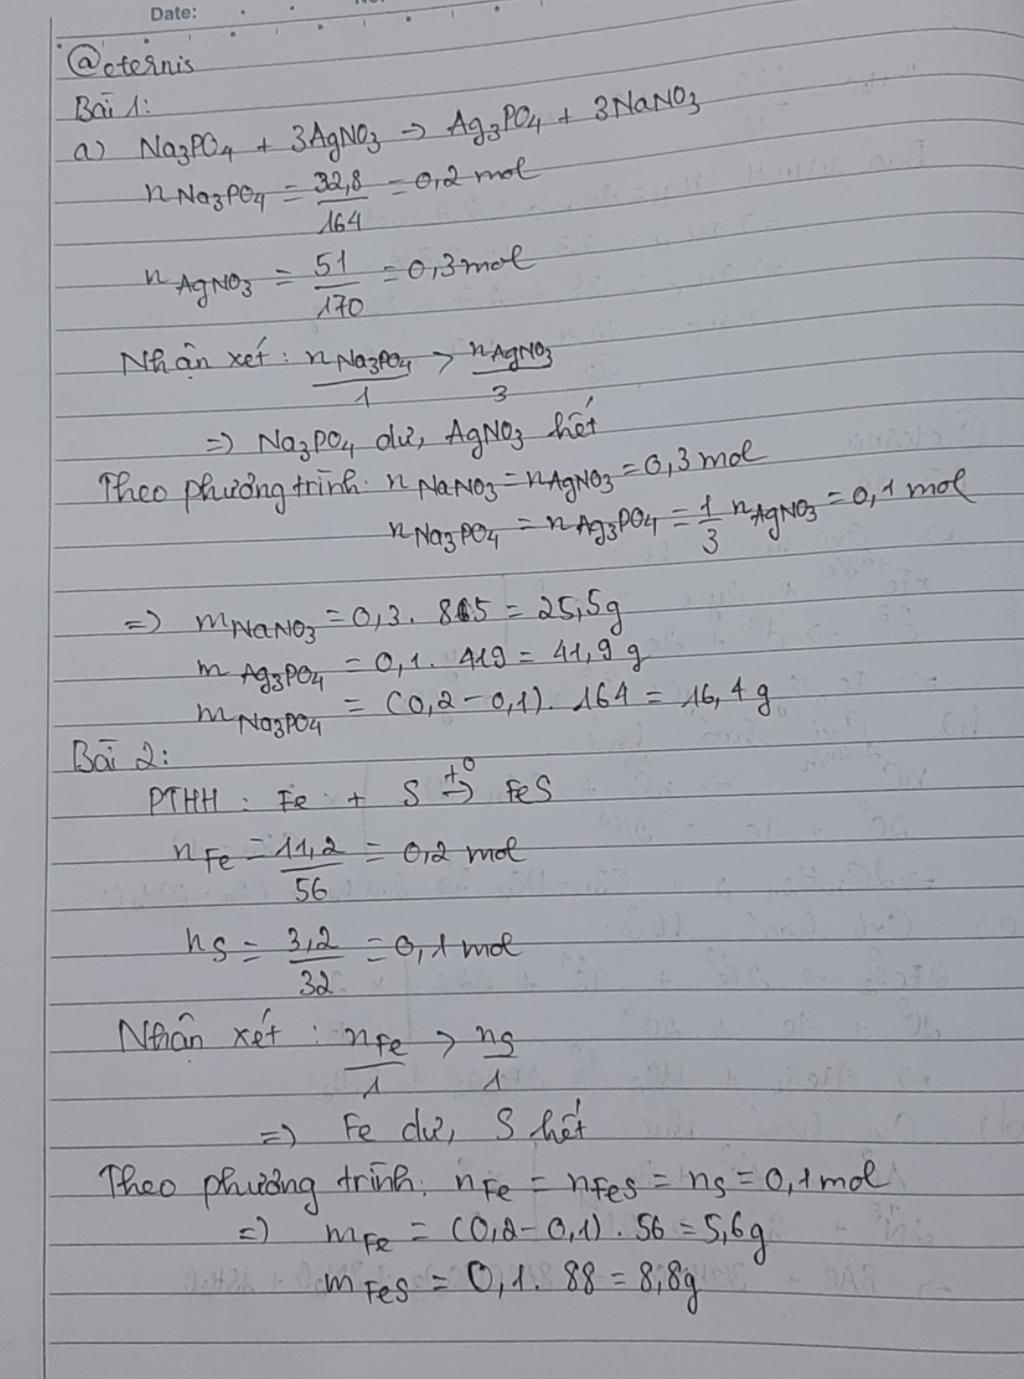 Date:
@eternis
Bài 1:
a) Na3PO4 + 3AgNO3 → Ag3PO4 + 3NaNO3
n Na3PO4 = 32,8/164 = 0,2 mol
n AgNO3 = 51/170 = 0,3 mol
Nhận xét: n Na3PO4/1 > n AgNO3/3
=> Na3PO4 dư, AgNO3 hết
Theo phương trình: n NaNO3 = n AgNO3 = 0,3 mol
n Na3PO4 = n Ag3PO4 = 1/3 n AgNO3 = 0,1 mol
=> m NaNO3 = 0,3 . 85 = 25,5g
m Ag3PO4 = 0,1 . 419 = 41,9 g
m Na3PO4 = (0,2 - 0,1) . 164 = 16,4 g
Bài 2:
PTHH: Fe + S t°→ FeS
n Fe = 11,2/56 = 0,2 mol
n S = 3,2/32 = 0,1 mol
Nhận xét: n Fe/1 > n S/1
=> Fe dư, S hết
Theo phương trình: n Fe = n FeS = n S = 0,1 mol
=> m Fe = (0,2 - 0,1) . 56 = 5,6g
m FeS = 0,1 . 88 = 8,8g